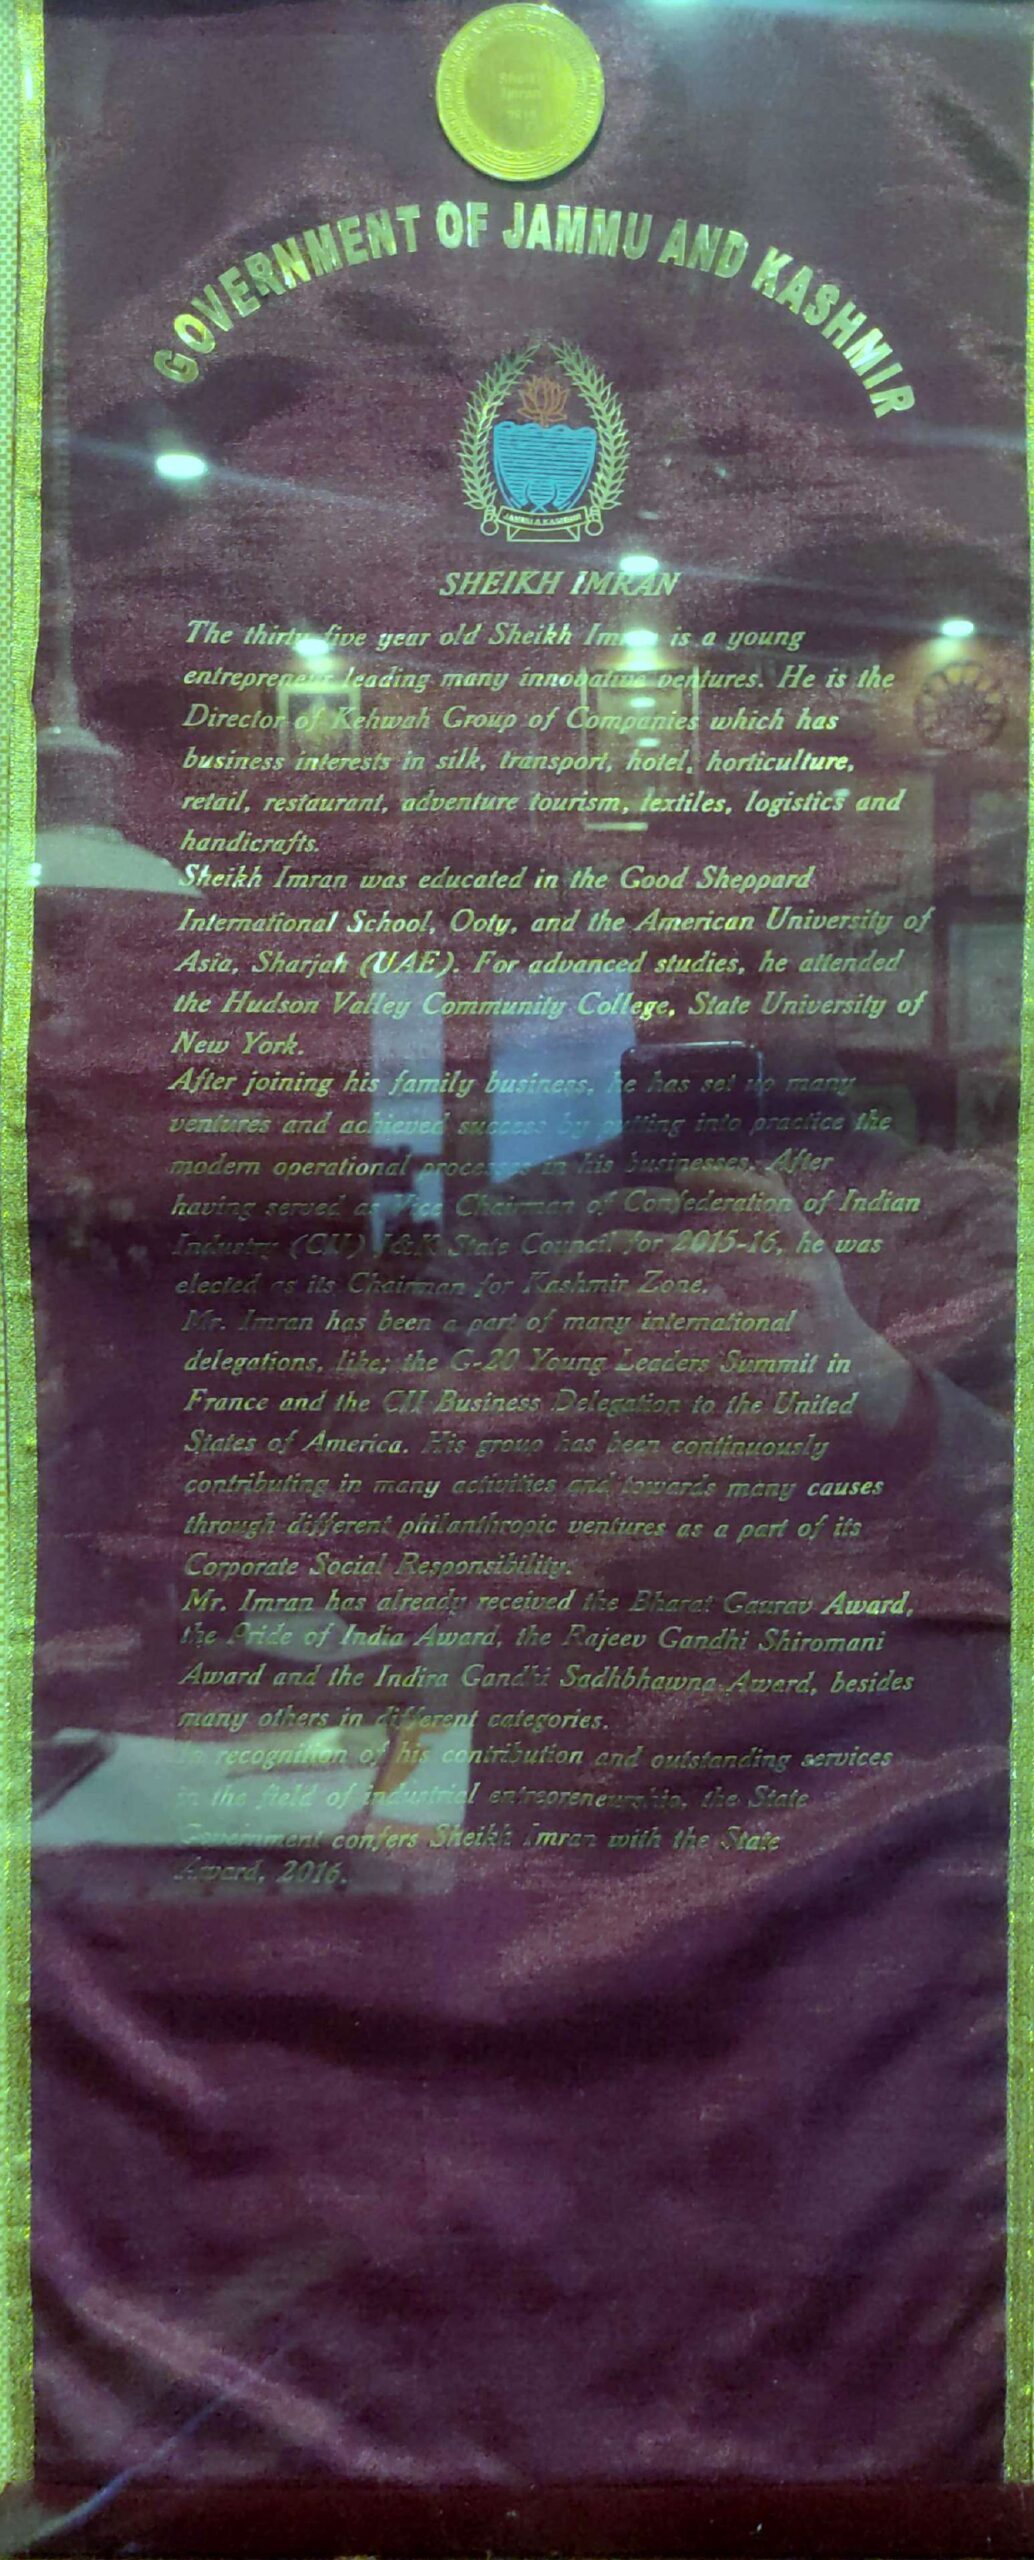 Sheikh
Imran
2016
GOVERNMENT OF JAMMU AND KASHMIR
JAMMU & KASHMIR
SHEIKH IMRAN
The thirty five year old Sheikh Imran is a young
entrepreneur leading many innovative ventures. He is the
Director of Kehwah Group of Companies which has
business interests in silk, transport, hotel, horticulture,
retail, restaurant, adventure tourism, textiles, logistics and
handicrafts.
Sheikh Imran was educated in the Good Sheppard
International School, Ooty, and the American University of
Asia, Sharjah (UAE). For advanced studies, he attended
the Hudson Valley Community College, State University of
New York.
After joining his family business, he has set up many
ventures and achieved success by putting into practice the
modern operational processes in his businesses. After
having served as Vice Chairman of Confederation of Indian
Industry (CII) J&K State Council for 2015-16, he was
elected as its Chairman for Kashmir Zone.
Mr. Imran has been a part of many international
delegations, like; the G-20 Young Leaders Summit in
France and the CII Business Delegation to the United
States of America. His group has been continuously
contributing in many activities and towards many causes
through different philanthropic ventures as a part of its
Corporate Social Responsibility.
Mr. Imran has already received the Bharat Gaurav Award,
the Pride of India Award, the Rajeev Gandhi Shiromani
Award and the Indira Gandhi Sadhbhawna Award, besides
many others in different categories.
In recognition of his contribution and outstanding services
in the field of industrial entrepreneurship, the State
Government confers Sheikh Imran with the State
Award, 2016.